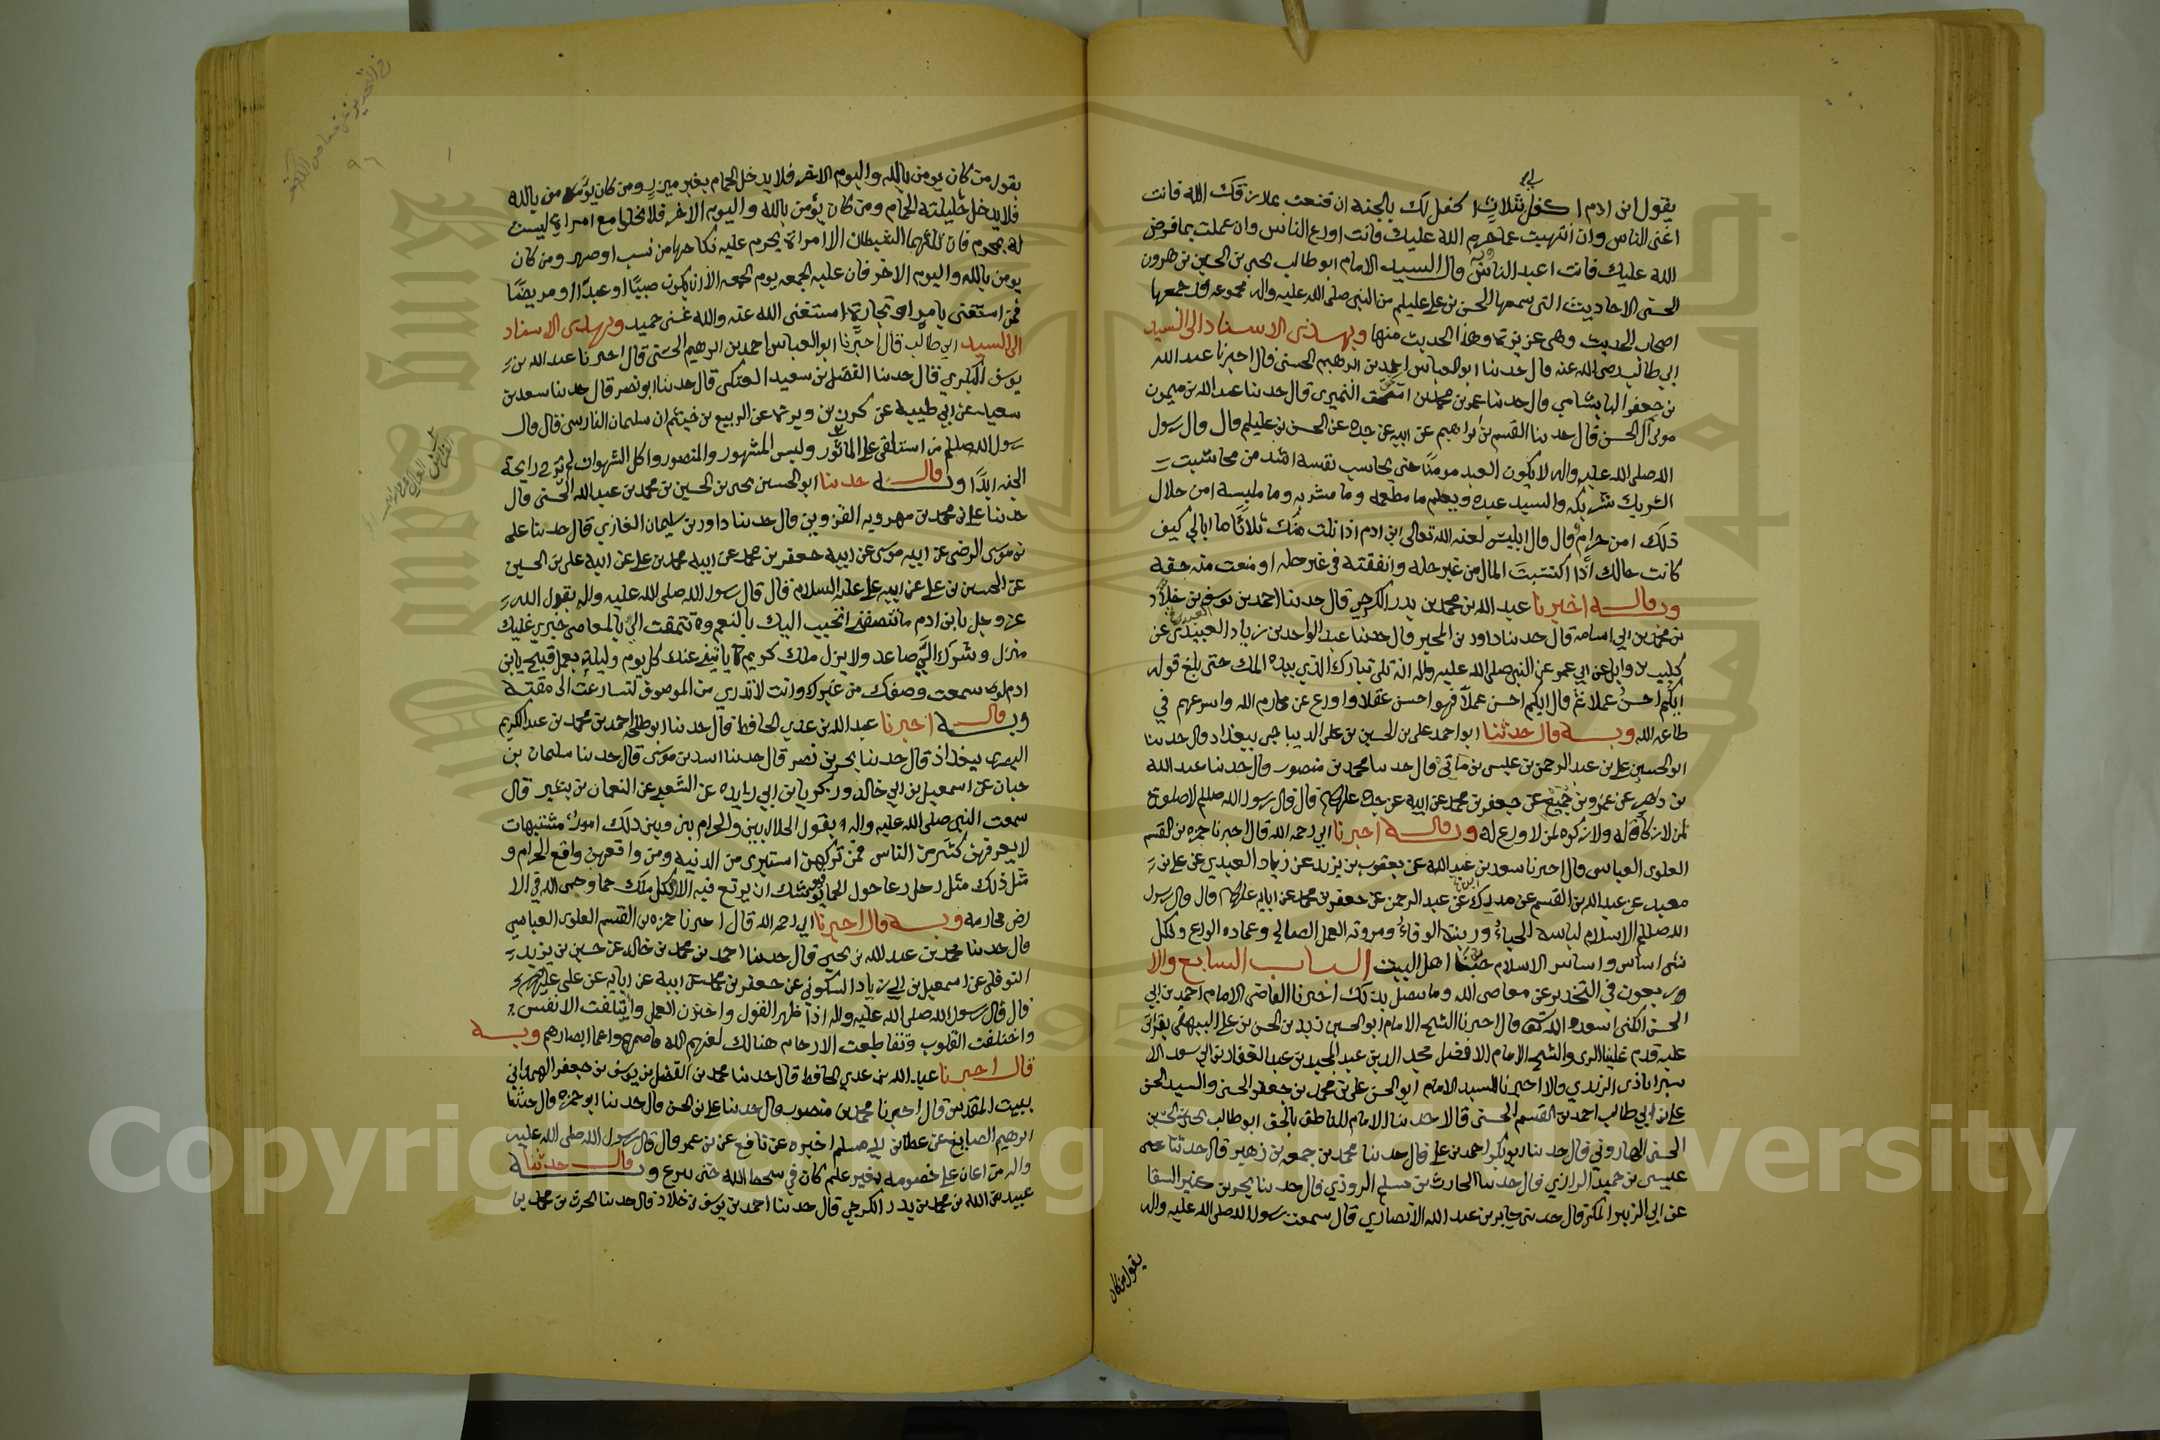 يقول ابن ادم اكفل بثلاث اكفل لك بالجنة ان قنعت بما رزقك الله فانت
اغنى الناس وان انتهيت عما حرم الله عليك فانت اورع الناس وان عملت بما فرض
الله عليك فانت اعبد الناس قال السيد الامام ابو طالب يحيى بن الحسين بن هرون
الحسنى الاحاديث التى سمعها الحسن بن على عليلم من النبى صلى الله عليه واله مجموعه قد جمعها
اصحاب الحديث وهى عزيزة وهذا الحديث منها وبهذى الاسناد الى السيد
ابي طالب رضى الله عنه قال حدثنا ابو العباس احمد بن ابرهيم الحسنى قال اخبرنا عبد الله
بن جعفر قال حدثنا عمر بن محمد بن النميري قال حدثنا عبد الله بن ميمون
مولى آل الحسن قال حدثنا القسم بن ابراهيم عن ابيه عن جده عن الحسن بن عليلم قال قال رسول
الله صلى الله عليه واله لا يكون العبد مومنًا حتى يحاسب نفسه اشد من محاسبت
الشريك شريكه والسيد عبده ويعلم ما مطعمه وما مشربه وما ملبسه امن حلال
ذلك امن حرام قال قال ابليس لعنه الله تعالى ابن ادم اذا نلت منك ثلاثًا ما ابالي كيف
كانت حالك اذا اكتسبت المال من غير حله وانفقته في غير حله او منعت منه حقه
وبه قال اخبرنا عبد الله بن محمد بن بدر الكرجي قال حدثنا احمد بن يوسف بن خلاد
بن محمد بن ابي اسامه قال حدثنا داود بن المحبر قال حدثنا عبد الواحد بن زياد العبيدي عن
كليب بن وايل عن ابي عمر عن النبى صلى الله عليه واله انه تلى تبارك الذي بيده الملك حتى بلغ قوله
ايكم احسن عملا ثم قال ايكم احسن عملاً فهو احسن عقلا واورع عن محارم الله واسرعهم في
طاعة الله وبه قال حدثنا ابو احمد على بن الحسين بن على الديباجى ببغداد قال حدثنا
ابو الحسين على بن عبد الرحمن بن عيسى بن ماتي قال حدثنا محمد بن منصور قال حدثنا عبد الله
بن داهر عن عمرو بن جميع عن جعفر بن محمد عن ابيه عن جده عليهم قال قال رسول الله صللم لا صلوة
لمن لا زكاة له ولا زكوه لمن لا ورع له وبه قال اخبرنا ابي رحمه الله قال اخبرنا حمزه بن القسم
العلوى العباسى قال اخبرنا سعد بن عبد الله عن يعقوب بن يزيد عن زياد العبدي عن على بن
معبد عن عبد الله بن القسم عن مدرك بن عبد الرحمن عن جعفر بن محمد عن ابايه عليهم قال قال رسول
الله صللم الاسلام لباسه الحياء وزينته الوقاء ومروته العمل الصالح وعماده الورع ولكل
شى اساس واساس الاسلام حبنا اهل البيت الباب السابع والا
وربعون في التحذير عن معاصى الله وما يتصل بذلك اخبرنا القاضى الامام احمد بن ابي
الحسن الكنى اسعده الله قال اخبرنا الشيخ الامام ابو الحسين زيد بن الحسن بن على البيهقى بقراتى
عليه قدم علينا الرى والشيخ الامام الافضل مجد الدين عبد المجيد بن عبد الغفار بن ابي سعد الا
ستراباذى الزيدي قالا اخبرنا السيد الامام ابو الحسن على بن محمد بن جعفر الحسنى والسيد الحسن
على بن ابي طالب احمد بن القسم الحسنى قالا حدثنا الامام الناطق بالحق ابو طالب يحيى بن الحسين
الحسنى الهاروني قال حدثنا ابو بكر احمد بن على قال حدثنا محمد بن جمعه بن زهير قال حدثنا عمه
عيسى بن حميد الرازي قال حدثنا الحارث بن مسلم الروذي قال حدثنا بحر بن كنيز السقا
عن ابي الزبير المكى قال حدثنى جابر بن عبد الله الانصاري قال سمعت رسول الله صلى الله عليه واله
يقول من كان
يقول من كان يومن بالله واليوم الاخر فلا يدخل الحمام بغير ميزر ومن كان يومن بالله
فلا يدخل حليلته الحمام ومن كان يؤمن بالله واليوم الاخر فلا يخلو مع امراة ليست
له بمحرم فان ثالثهما الشيطان الا امراة يحرم عليه نكاحها من نسب او صهر ومن كان
يومن بالله واليوم الاخر فان عليه الجمعه يوم الجمعه الا ان يكون صبيًا او عبدًا او مريضًا
فمن استغنى بامر او تجارة استغنى الله عنه والله غنى حميد وبهذى الاسناد
الى السيد ابي طالب قال اخبرنا ابو العباس احمد بن ابرهيم الحسنى قال اخبرنا عبد الله بن
يوسف البكري قال حدثنا الفضل بن سعيد العتكى قال حدثنا ابو نصر قال حدثنا سعد بن
سعيد عن ابي طيبه عن كرز بن وبرة عن الربيع بن خيثم ان سلمان الفارسى قال قال
رسول الله صللم من استلقى على الماثور ولبس المشهور والمنصور واكل الشهوات لم يرح رايحة
الجنه ابدًا وبه قال حدثنا ابو الحسين يحيى بن الحسين بن محمد بن عبد الله الحسنى قال
حدثنا على بن محمد بن مهرويه القزويني قال حدثنا داود بن سليمان الغازي قال حدثنا على
بن موسى الرضى عن ابيه موسى عن ابيه جعفر بن محمد عن ابيه محمد بن على عن ابيه على بن الحسين
عن الحسين بن على عن ابيه على عليه السلام قال قال رسول الله صلى الله عليه واله يقول الله
عز وجل يا بن ادم ما تنصفنى اتحبب اليك بالنعم وتتمقت الي بالمعاصى خيري عليك
منزل وشرك الي صاعد ولا يزل ملك كريم ياتينى عنك كل يوم وليلة بعمل قبيح يا بن
ادم لو سمعت وصفك من غيرك وانت لا تدري من الموصوف لتسارعت الى مقته
وبه قال اخبرنا عبد الله بن عدي الحافظ قال حدثنا ابو طلحة احمد بن محمد بن عبد الكريم
البصرى ببغداد قال حدثنا بحر بن نصر قال حدثنا اسد بن موسى قال حدثنا سليمان بن
حبان عن اسمعيل بن ابي خالد وزكريا بن ابي زايده عن الشعبى عن النعمان بن بشير قال
سمعت النبى صلى الله عليه واله يقول الحلال بين والحرام بين وبين ذلك امور مشتبهات
لا يعرفهن كثير من الناس فمن تركهن استبرى من الدنيه ومن واقعهن واقع الحرام و
مثل ذلك مثل رجل رعا حول الحما يوشك ان يرتع فيه الا لكل ملك حما وحمى الله في الا
رض محارمه وبه قال اخبرنا ابي رحمه الله قال اخبرنا حمزه بن القسم العلوى العباسى
قال حدثنا محمد بن عبد الله بن يحيى قال حدثنا احمد بن محمد بن خالد عن حسين بن يزيد
النوفلى عن اسمعيل بن ابي زياد السكونى عن جعفر بن محمد عن ابيه عن ابايه عن على عليهم
قال قال رسول الله صلى الله عليه واله اذا ظهر القول واختزن العمل وايتلفت الانفس
واختلفت القلوب وتقاطعت الارحام هنالك لعنهم الله فاصمهم واعما ابصارهم وبه
قال اخبرنا عبد الله بن عدي الحافظ قال حدثنا محمد بن الفضل بن يوسف بن جعفر الهمداني
ببيت المقدس قال اخبرنا محمد بن منصور قال حدثنا على بن الحسن قال حدثنا ابو حمزه قال حدثنا
ابرهيم الصايغ عن عطا بن ابي مسلم اخبره عن نافع عن بن عمر قال قال رسول الله صلى الله عليه
واله من اعان على خصومه بغير علم كان في سخط الله حتى ينزع وبه قال حدثنا
عبيد الله بن محمد بن بدر الكرجي قال حدثنا احمد بن يوسف بن خلاد قال حدثنا الحرث بن محمد بن
٩٦
Copyright © King Saud University
King Saud University
جامعة الملك سعود
1957